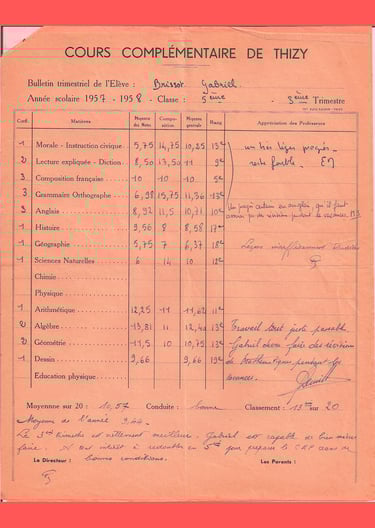 COURS COMPLÉMENTAIRE DE THIZY
Bulletin trimestriel de l'Elève : Brissot Gabriel
Année scolaire 1957 - 1958 - Classe : 5ème 3ème Trimestre
Coef. Matières Moyenne des Notes Composition Moyenne générale Rang Appréciation des Professeurs
1 Morale - Instruction civique 5,75 14,75 10,25 13e un très léger progrès.
2 Lecture expliquée - Diction 8,50 13,50 11 9e reste faible.
3 Composition française 10 10 10 5e
3 Grammaire Orthographe 6,98 15,75 11,36 13e
3 Anglais 8,92 11,5 10,71 10e Un progrès certain en anglais, qu'il faut
pendant les vacances
1 Histoire 9,56 8 8,58 17e
1 Géographie 5,75 7 6,37 18e Leçons insuffisamment étudiées
1 Sciences Naturelles 6 14 10 12e
Chimie
Physique
1 Arithmétique 12,25 11 11,62 11e
2 Algèbre 13,81 11 12,40 13e Travail tout juste passable
2 Géométrie 11,5 10 10,75 13e Gabriel devra faire des révisions
1 Dessin 9,66 9,66 19e de Mathématiques pendant les
Education physique vacances.
Moyenne sur 20 : 10,57 Conduite : bonne Classement : 13e sur 20
Moyenne de l'année 9,66
Le 3ème trimestre est nettement meilleur. Gabriel est capable de bien mieux
faire. A tout intérêt à redoubler en 5ème pour préparer le CAP dans de
bonnes conditions.
Le Directeur : Les Parents :